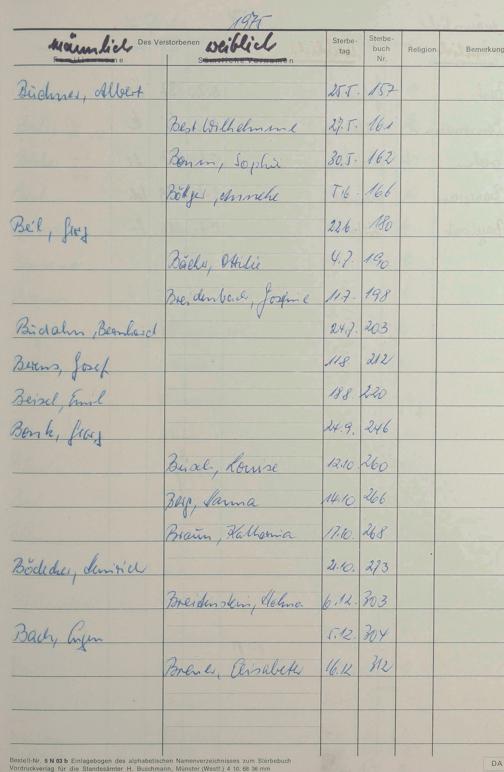 1975
männlich Des Verstorbenen weiblich
Sterbe- Sterbe-
tag buch Religion Bemerkung
Nr.
Büchner, Albert 25.5. 157
Best Wilhelmine 27.5. 161
Bonn, Sophie 30.5. 162
Böttger, 5.6. 166
Beil, Georg 22.6. 180
Bäcker, Ottilie 4.7. 190
Breidenbach, Josefine 11.7. 198
Büdahn, Bernhard 24.7. 203
Berens, Josef 11.8 212
Beisel, Emil 18.8 220
Bonk, Georg 24.9. 246
Busch, Louise 12.10 260
Berg, Hanna 14.10 266
Braun, Katharina 17.10. 268
Bödeker, Heinrich 21.10. 273
Breidenstein, Helma 6.12. 303
Bach, Eugen 5.12. 304
Breuer, Elisabeth 16.12 312
Bestell-Nr. 5 N 03 b Einlagebogen des alphabetischen Namenverzeichnisses zum Sterbebuch
Vordruckverlag für die Standesämter H. Buschmann, Münster (Westf.) 4 10. 66 36 mm
DA